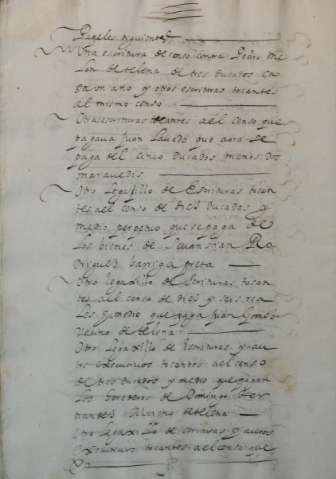 Papeles siguientes
Una escritura de censo contra Pedro Me
de telena de tres ducados ca
da un año y otras escrituras tocantes
al mismo censo
Otra escrituras tocantes al censo que
pagava Juan que aora se
paga del cinco ducados menos dos
maravedis
Otro Legaxillo de Escrituras tocan
tes al censo de tres ducados y
medio perpetuo que se paga de
Los bienes de Sevastian Ro
driguez barriga prieta
Otro Legaxillo de escrituras tocan
tes al censo de dies y seis rea
Les y medio que paga Juan Gomes
Vesino de telena
Otro Legaxillo de Escrituras y au
tos executivos tocantes al censo
de dos ducados y medio que pagan
Los herederos de Domingo Her
nandes de telena
Otro Legaxillo de escrituras y autos
executivos tocantes al censo que